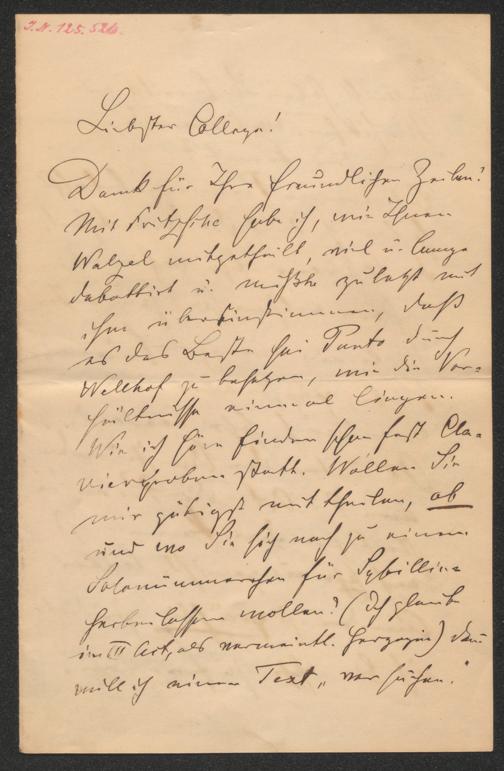 I.N. 125.526.
Liebster College!
Dank für Ihre freundlichen Zeilen!
Mit Fritzsche habe ich, wie Ihnen
Walzel mitgetheilt, viel u. lange
debattirt u. mußte zuletzt mit
ihm übereinstimmen, daß
es das Beste sei Punto durch
Wellhof zu besetzen, wie die Ver-
hältnisse einmal liegen.
Wie ich höre finden schon fast Cla-
vierproben statt. Wollen Sie
mir gütigst mittheilen, ob
und wo Sie sich noch zu einem
Solonümmerchen für Sybillin-
herbeilassen wollen? (Ich glaube
im II Act, als vermeintl. Herzogin) dann
will ich einen Text „versuchen."